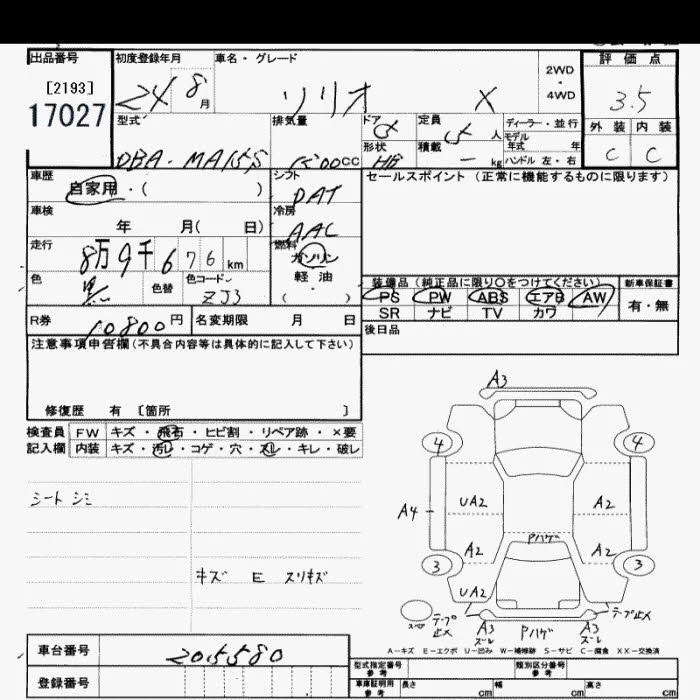 出品番号 初度登録年月 車名・グレード 評価点
[2193] 24 8月 ソリオ X 2WD・4WD 3.5
17027
型式 排気量 ドア 定員 人 ディーラー・並行 外装 内装
形状 積載 kg モデル年式 年 C C
DBA-MA15S cc HB ハンドル 左・右
車歴 シフト セールスポイント (正常に機能するものに限ります)
自家用・( ) DAT
車検 冷房
年 月( 日) AAC
走行 燃料
8万9千676km ガソリン
色 色替 色コード 軽油
黒 ZJ3 ( )
装備品(純正品に限り○をつけてください) 新車保証書
PS PW ABS エアB AW 有・無
SR ナビ TV カワ
R券 10800円 名変期限 月 日 後日品
注意事項申告欄(不具合内容等は具体的に記入して下さい)
修復歴 有 [箇所 ]
検査員 FW キズ・飛石・ヒビ割・リペア跡・×要
記入欄 内装 キズ・汚れ・コゲ・穴・スレ・キレ・破レ
シート シミ
キズ E スリキズ
A3
4 4
UA2 A2
A4
Pハゲ
A2 A2
3 3
UA2
テープ止メ A3 スレ Pハゲ A3 スレ テープ止メ
A-キズ E-エクボ U-凹み W-補修跡 S-サビ C-腐食 XX-交換済
車台番号 205580
登録番号
型式指定番号 参考 類別区分番号 参考
車庫証明用 参考 長さ cm 幅 cm 高さ cm